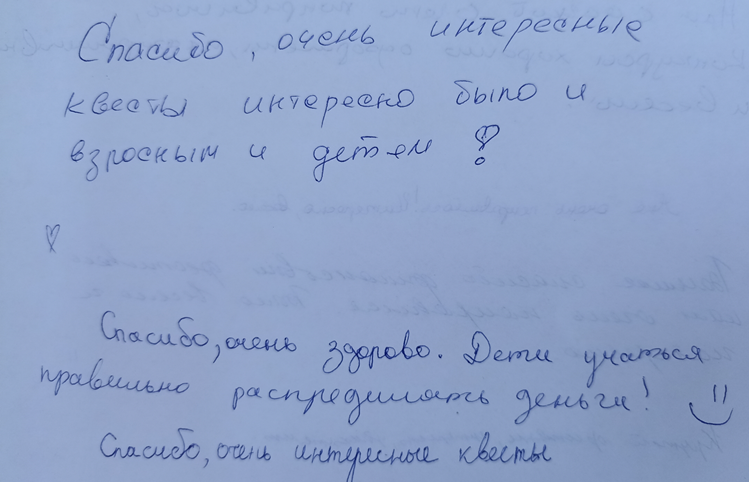 Спасибо, очень интересные
квесты интересно было и
взросным и детям !
Спасибо, очень здорово. Дети учаться
правильно распределять деньги!
Спасибо, очень интересные квесты